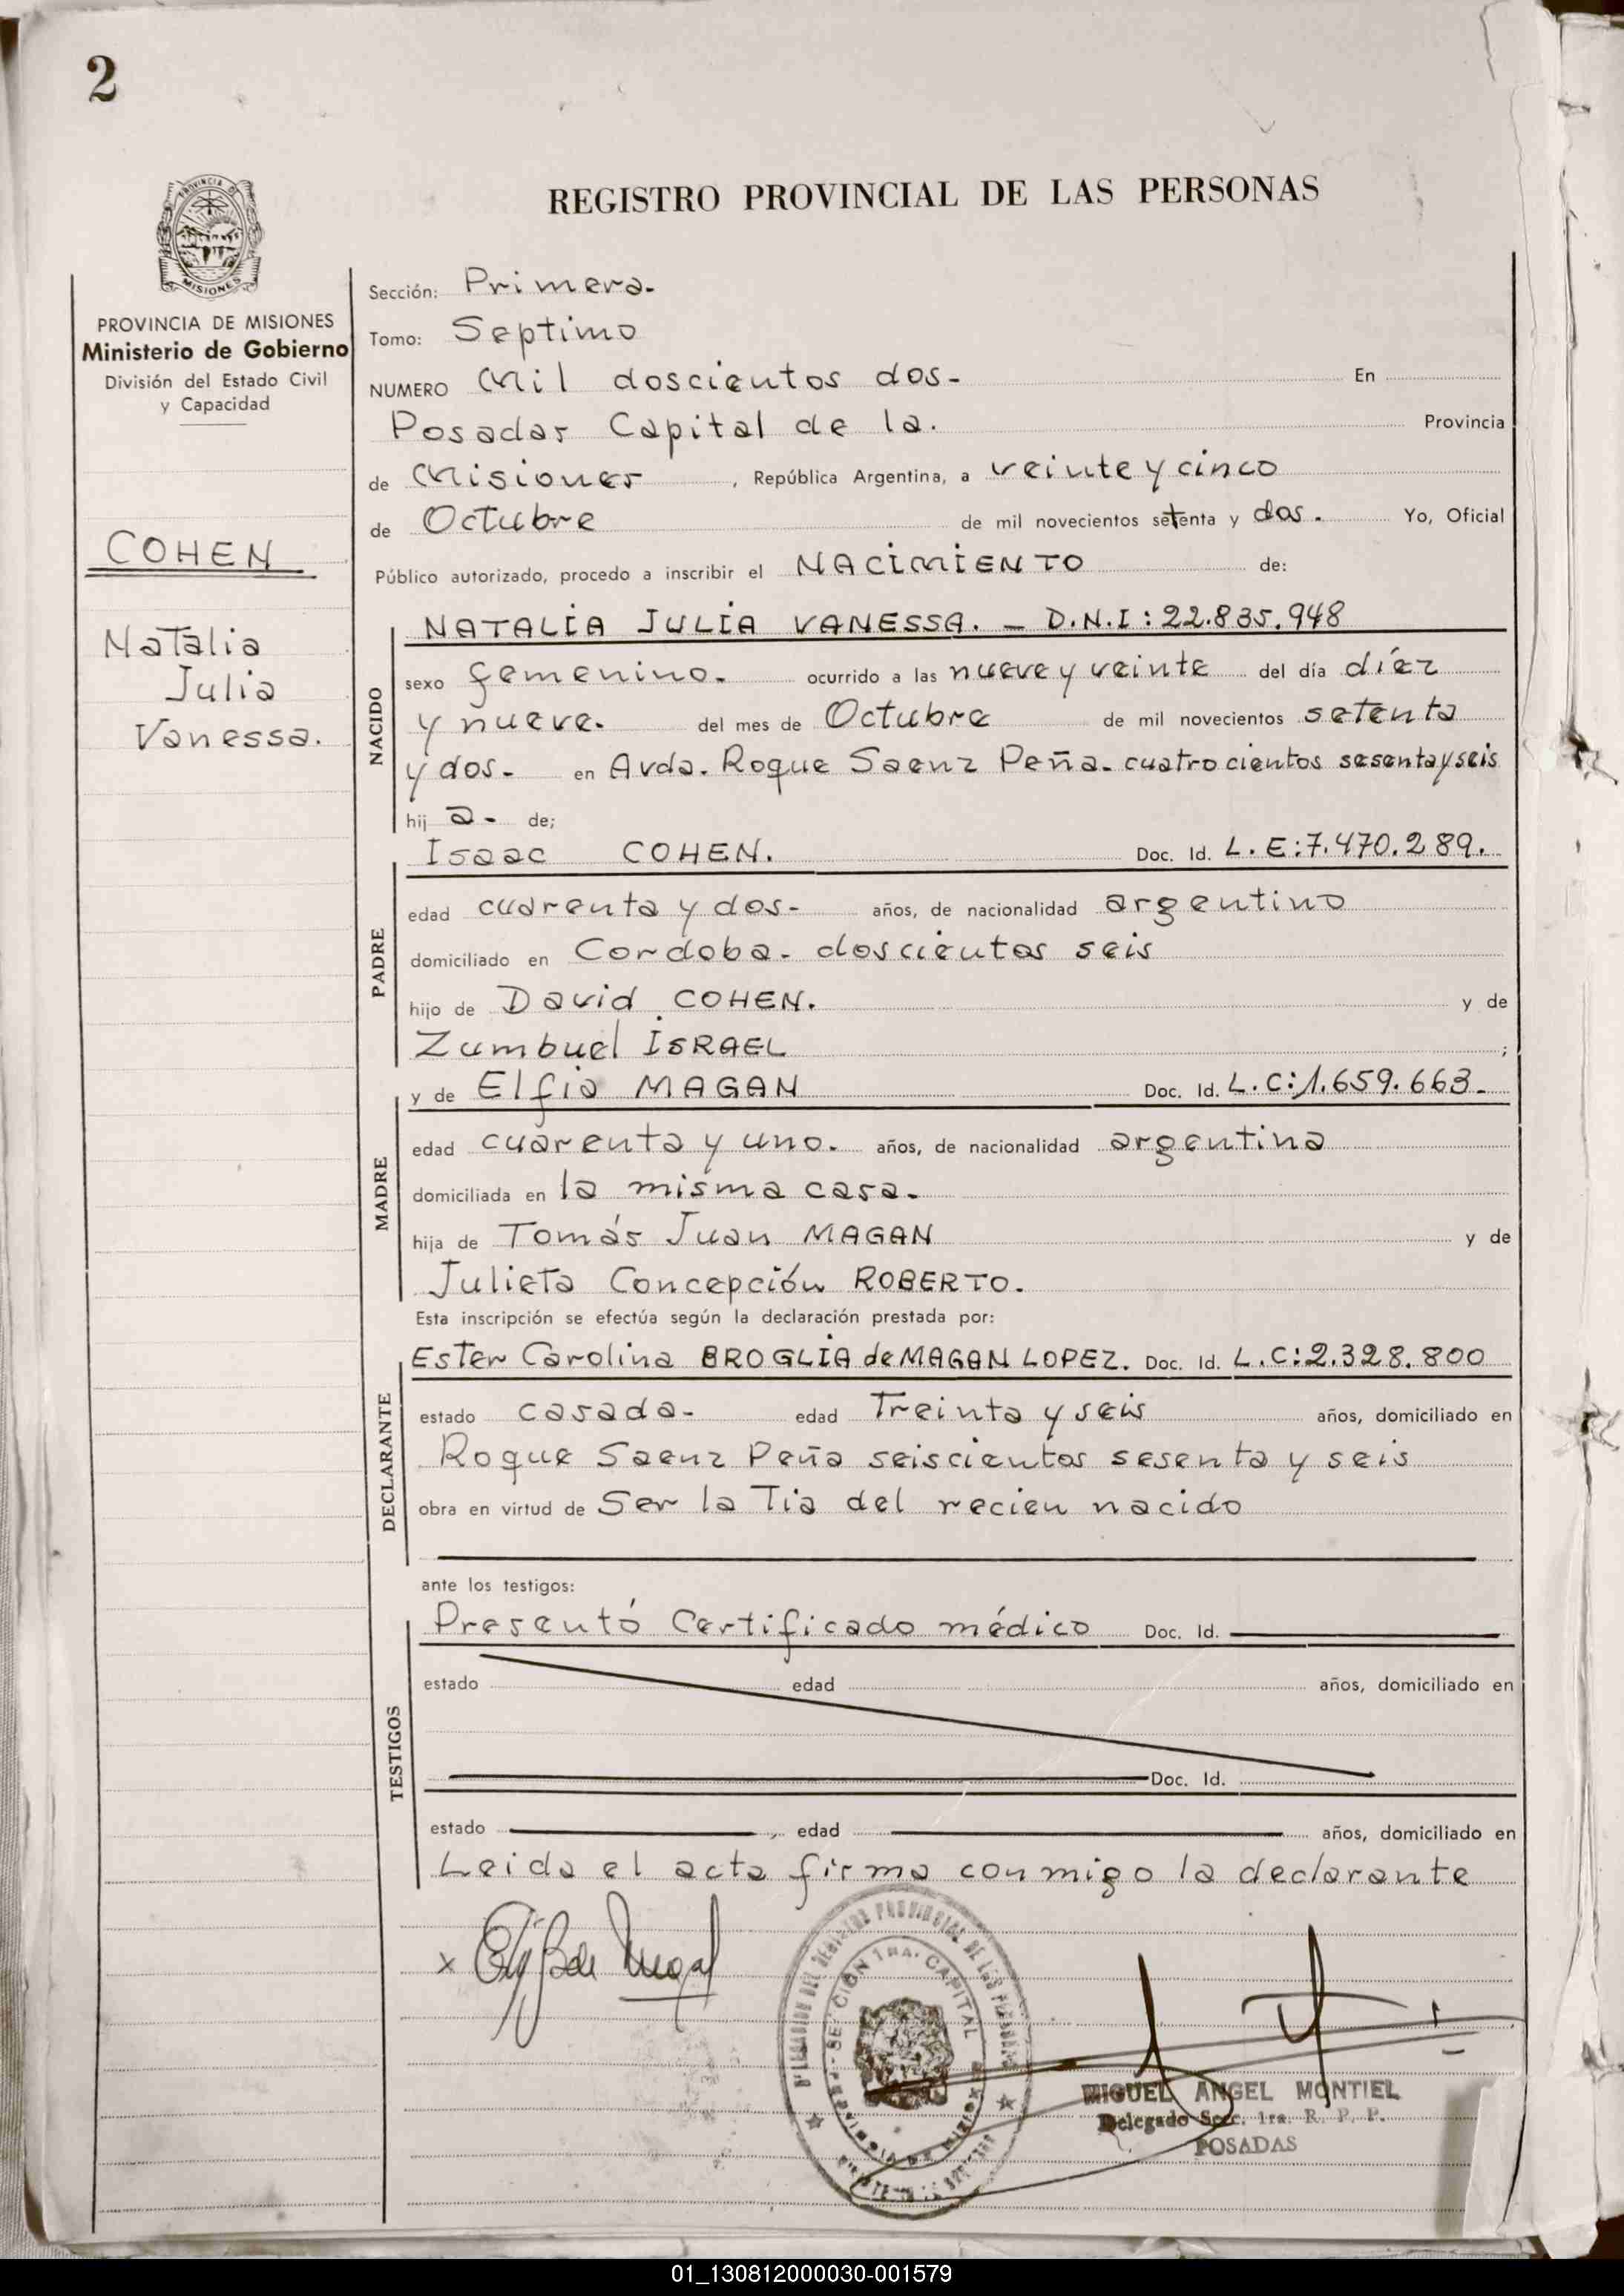 2
REGISTRO PROVINCIAL DE LAS PERSONAS
PROVINCIA DE
MISIONES
PROVINCIA DE MISIONES
Ministerio de Gobierno
División del Estado Civil
y Capacidad
COHEN
Natalia
Julia
Vanessa.
Sección: Primera.
Tomo: Septimo
NUMERO Mil doscientos dos- En
Posadas Capital de la. Provincia
de Misiones , República Argentina, a veinte y cinco
de Octubre de mil novecientos setenta y dos. Yo, Oficial
Público autorizado, procedo a inscribir el NACIMIENTO de:
NACIDO
NATALIA JULIA VANESSA. – D.N.I: 22.835.948
sexo femenino. ocurrido a las nueve y veinte del día díez
y nueve. del mes de Octubre de mil novecientos setenta
y dos- en Avda. Roque Saenz Peña- cuatrocientos sesenta y seis
hij a- de;
PADRE
Isaac COHEN. Doc. Id. L.E:7.470.289.
edad cuarenta y dos- años, de nacionalidad argentino
domiciliado en Cordoba- doscientos seis
hijo de David COHEN. y de
Zumbuel ISRAEL ;
MADRE
y de Elfia MAGAN Doc. Id. L.C:1.659.663-
edad cuarenta y uno. años, de nacionalidad argentina
domiciliada en la misma casa.
hija de Tomás Juan MAGAN y de
Julieta Concepción ROBERTO.
Esta inscripción se efectúa según la declaración prestada por:
DECLARANTE
Ester Carolina BROGLIA de MAGAN LOPEZ. Doc. Id. L.C:2.328.800
estado casada- edad Treinta y seis años, domiciliado en
Roque Saenz Peña seiscientos sesenta y seis
obra en virtud de Ser la Tia del recien nacido
ante los testigos:
TESTIGOS
Presentó Certificado médico Doc. Id.
estado edad años, domiciliado en
Doc. Id.
estado , edad años, domiciliado en
Leida el acta firma conmigo la declarante
x
DEL REGISTRO PROVINCIAL DE LAS PERSONAS
SECCION 1RA. CAPITAL
PROVINCIA DE MISIONES
MIGUEL ANGEL MONTIEL
Delegado Secc. 1ra. R. P. P.
POSADAS
01_130812000030-001579